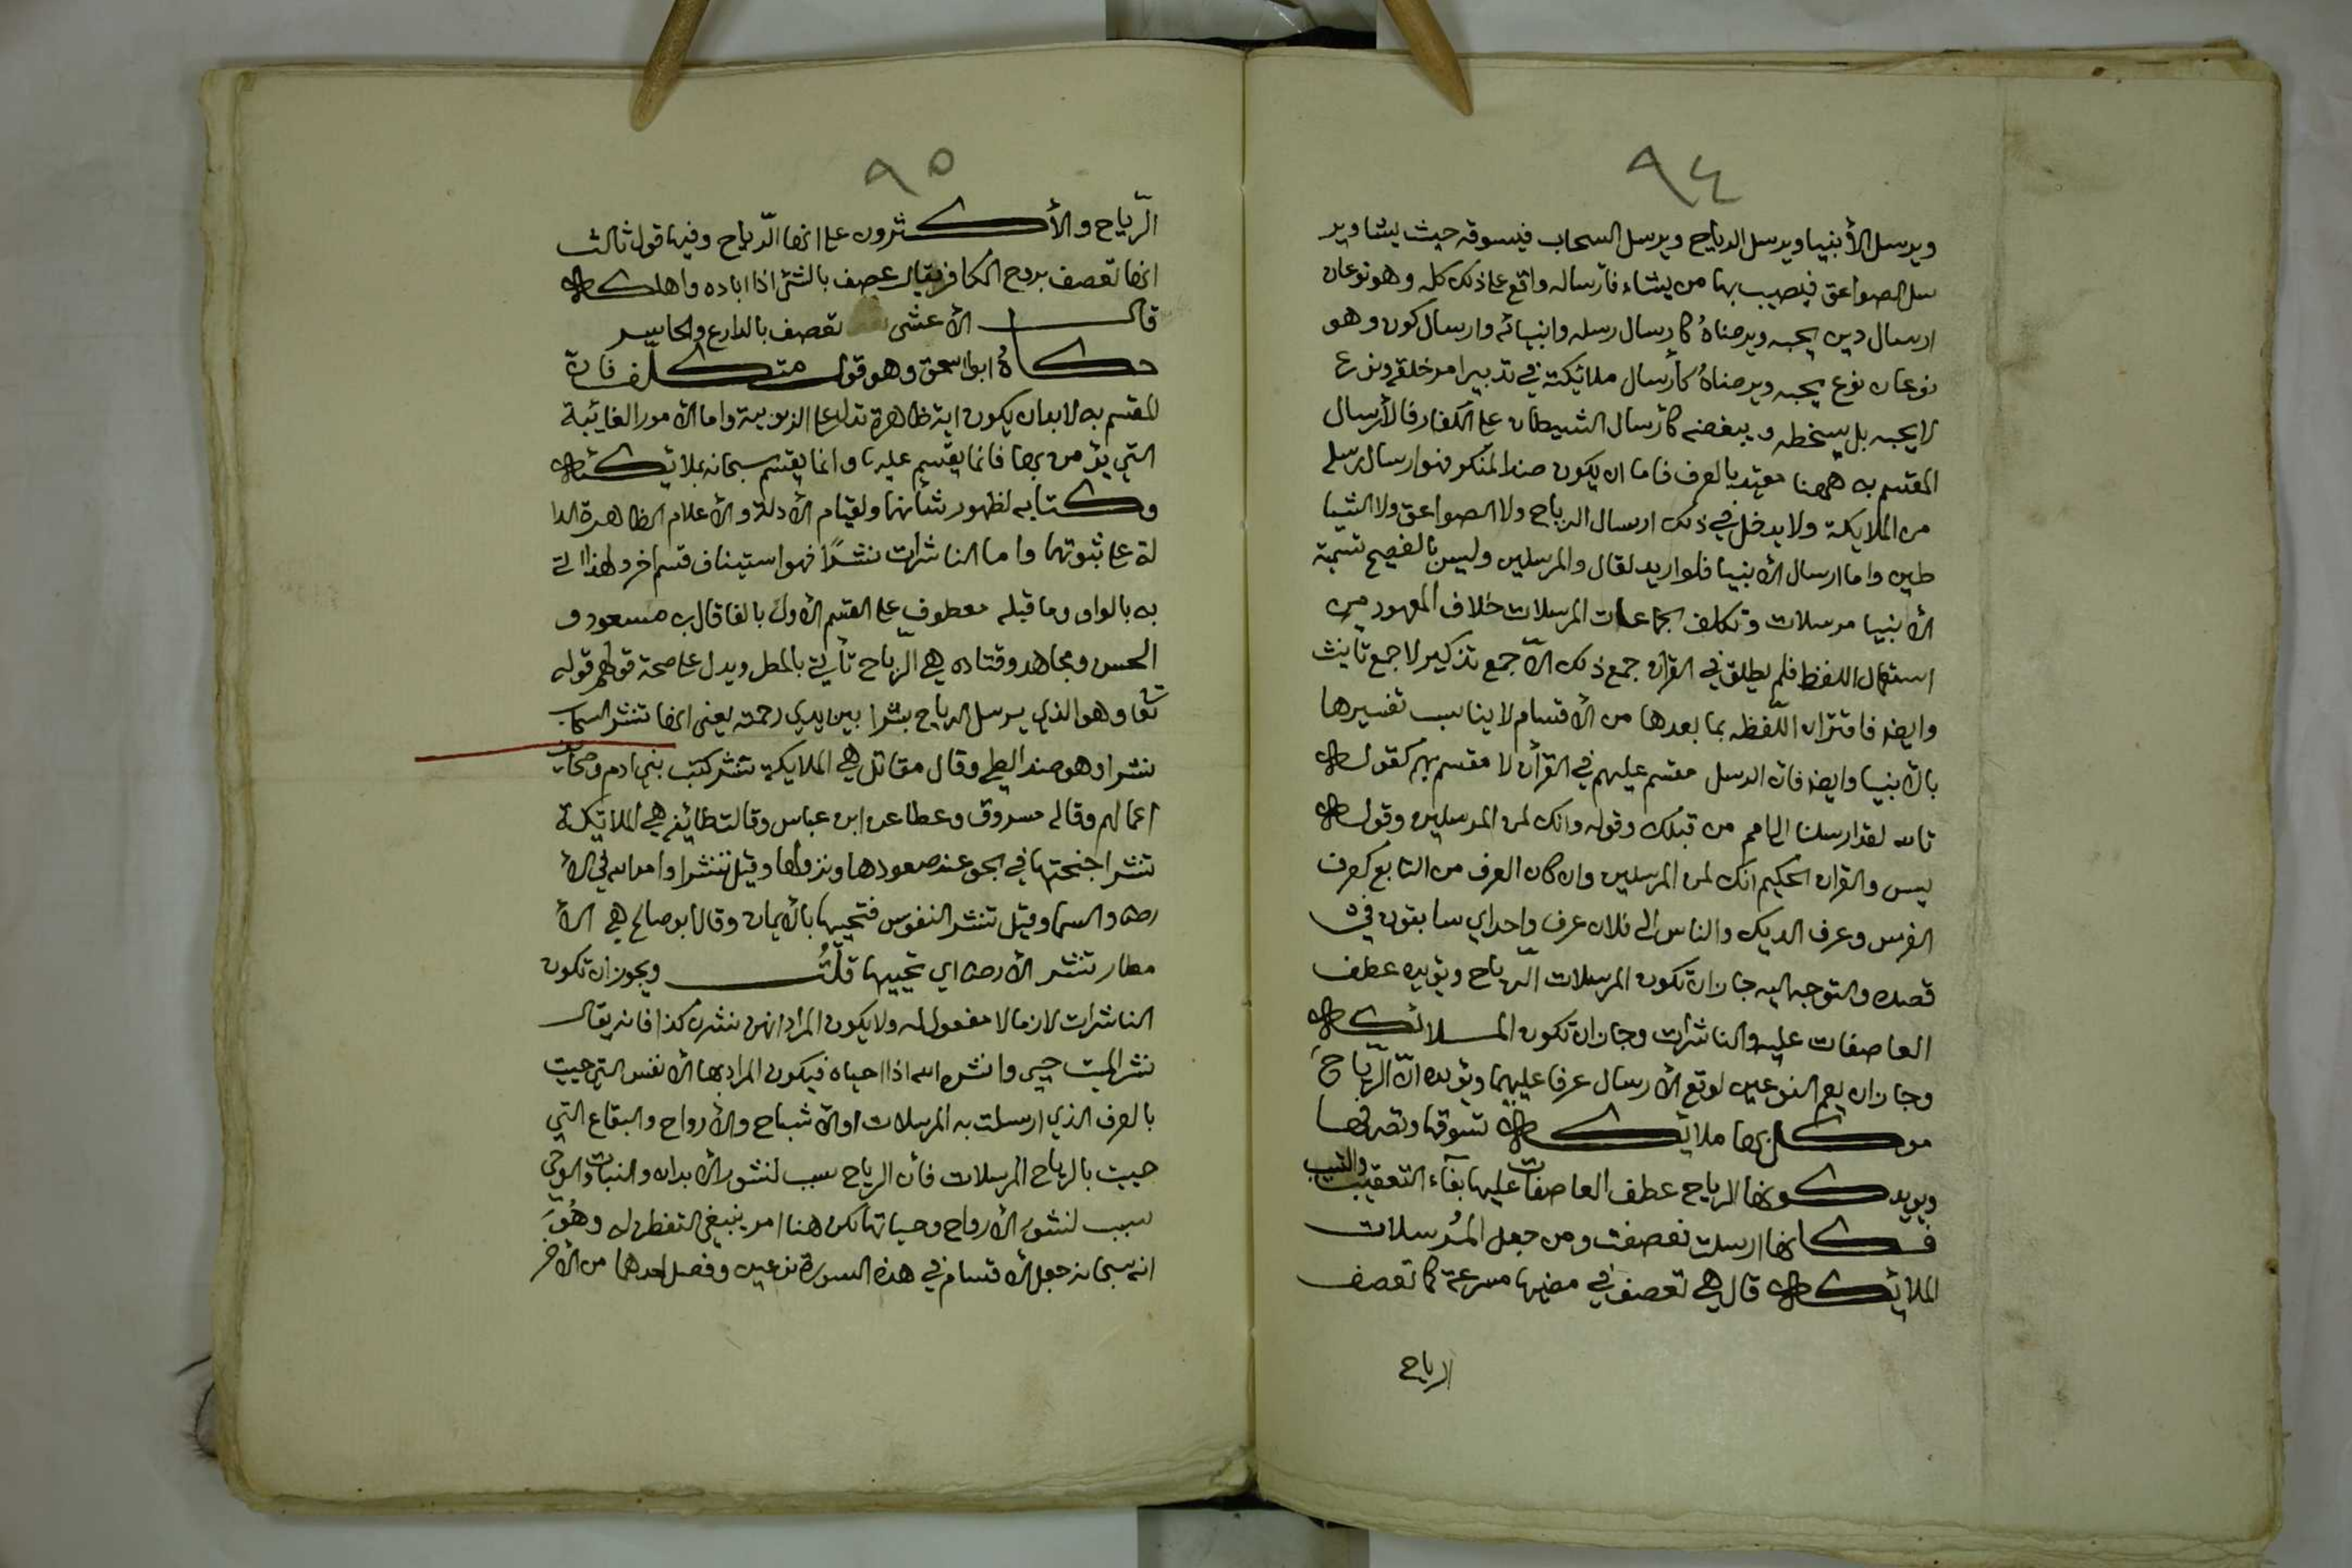 ٩٤
ويرسل الأنبيا ويرسل الرياح ويرسل السحاب فيسوقه حيث يشا وير
سل الصواعق فيصيب بها من يشاء فأرساله واقع على ذلك كله وهو نوعان
ارسال دين يحبه ويرضاهُ كأرسال رسله وانبيائه وارسال كون وهو
نوعان نوع يحبه ويرضاهُ كأرسال ملائيكته في تدبير امر خلقه ونوع
لا يحبه بل يسخطه ويبغضه كأرسال الشيطان على الكفار فالأرسال
المقسم به ههنا مقيد بالعرف فاما ان يكون ضد المنكر فهو ارسال رسله
من الملايكة ولا يدخل في ذلك ارسال الرياح ولا الصواعق ولا الشيا
طين واما ارسال الأنبيا فلو اريد لقال والمرسلين وليس بالفصيح تسمية
الأنبيا مرسلات وتكلف الجماعات المرسلات خلاف المعهود من
استعمال اللفظ فلم يطلق في القرآن جمع ذلك الّا جمع تذكير لا جمع تأنيث
وايضا فاقتران اللّفظه بما بعدها من الأقسام لا يناسب تفسيرها
بالأنبيا وايضا فان الرسل مقسم عليهم في القرأن لا مقسم بهم كقوله
تالله لقد ارسلنا الى امم من قبلك وقوله وانك لمن المرسلين وقوله
يس والقران الحكيم انك لمن المرسلين وان كان العرف من التابع كعرف
الفرس وعرف الديك والناس الى فلان عرف واحد اي سابقون في
قصده والتوجه اليه جاز ان تكون المرسلات الرّياح ويؤيده عطف
العاصفات عليه والناشرات وجاز ان تكون الملائيكة
وجاز ان يعم النوعين لوقع الأرسال عرفا عليهما ويؤيده انّ الرّياحَ
موكل بها ملائيكة تسوقها وتصرفها
ويويد كونها الرياح عطف العاصفات عليها بفآء التعقيب والتسبب
فكانها ارسلت فعصفت ومن جعل المُرسلات
الملائيكة قال هي تعصف في مضيها مسرعة كما تعصف
الرياح
٩٥
الرّياح والأكثرون على انها الرّياح وفيها قول ثالث
انها تعصف بروح الكافر يقال عصف بالشئ اذا اباده واهلكه
قال الأعشى تعصف بالدارع والحاسر
حكاهُ ابو اسحق وهو قول متكلّف فان
المقسم به لابد ان يكون اية ظاهرة تدل على الربوبية واما الأمور الغائبة
التي يؤمن بها فانما يقسم عليها وانما يقسم سبحانه بملائيكته
وكتابه لظهور شأنهما ولقيام الأدلة والأعلام الظاهرة الدا
لة على ثبوتهما واما الناشرات نشرًا فهو استيناف قسم اخر ولهذا اتى
به بالواو وما قبله معطوف على القسم الأول بالفا قال بن مسعود و
الحسن ومجاهد وقتاده هي الرّياح تأتي بالمطر ويدل على صحة قولهم قوله
تعا وهو الذي يرسل الرياح بشرا بين يدي رحمته يعني انها تنشر السحاب
نشرا وهو ضد الطي وقال مقاتل هي الملايكة تنشر كتب بني ادم وصحايف
اعمالهم وقاله مسروق وعطا عن ابن عباس وقالت طائفه هي الملائيكة
تنشر اجنحتها في الجو عند صعودها ونزولها وقيل تنشر اوامر الله في الأ
رض والسما وقيل تنشر النفوس فتحييها بالأيمان وقال ابو صالح هي الأ
مطار تنشر الأرض اي تحييها قلتُ ويجوز ان تكون
الناشرات لازما لا مفعول له ولا يكون المراد انهن نشرن كذا فانه يقال
نشر الميت حيى وانشره الله اذا احياه فيكون المراد بها الأنفس التي حييت
بالعرف الذي ارسلت به المرسلات او الأشباح والأرواح والبقاع التي
حييت بالرياح المرسلات فأن الرياح سبب لنشور الأبدان والنبات والوحي
سبب لنشور الأرواح وحياتها لكن هنا امر ينبغي التفطن له وهُوَ
انه سبحانه جعل الأقسام في هذه السورة نوعين وفصل احدهما من الأخر